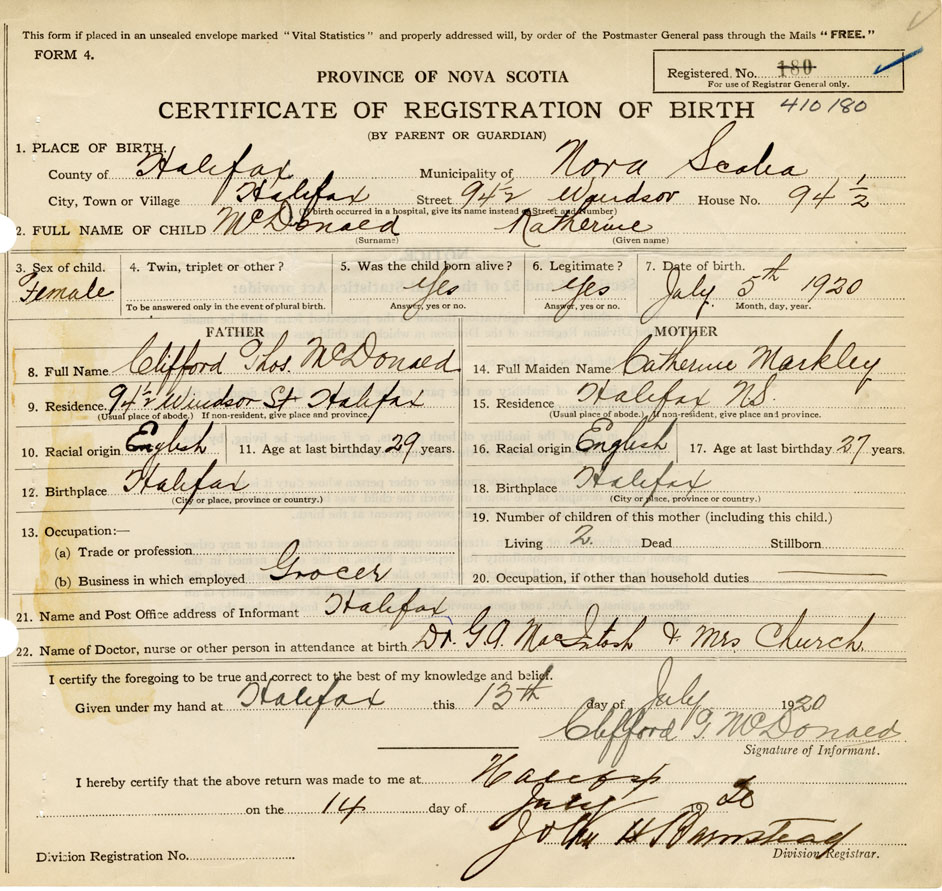 This form if placed in an unsealed envelope marked "Vital Statistics" and properly addressed will, by order of the Postmaster General pass through the Mails "FREE."
FORM 4.
Registered. No. 180
For use of Registrar General only.
PROVINCE OF NOVA SCOTIA
CERTIFICATE OF REGISTRATION OF BIRTH 410180
(BY PARENT OR GUARDIAN)
1. PLACE OF BIRTH.
County of Halifax Municipality of Nova Scotia
City, Town or Village Halifax Street 94½ Windsor House No. 94½
(If birth occurred in a hospital, give its name instead of Street and Number)
2. FULL NAME OF CHILD McDonald Katherine
(Surname) (Given name)
3. Sex of child. 4. Twin, triplet or other? 5. Was the child born alive? 6. Legitimate? 7. Date of birth.
Female Yes Yes July 5th 1920
To be answered only in the event of plural birth. Answer, yes or no. Answer, yes or no. Month, day, year.
FATHER
8. Full Name Clifford Thos. McDonald
9. Residence. 94½ Windsor St Halifax
(Usual place of abode.) If non-resident, give place and province.
10. Racial origin English 11. Age at last birthday 39 years.
12. Birthplace Halifax
(City or place, province or country.)
13. Occupation:—
(a) Trade or profession
(b) Business in which employed Grocer
MOTHER
14. Full Maiden Name Catherine Markley
15. Residence Halifax N.S.
(Usual place of abode.) If non-resident, give place and province.
16. Racial origin English 17. Age at last birthday 37 years.
18. Birthplace Halifax
(City or place, province or country.)
19. Number of children of this mother (including this child.)
Living 2 Dead Stillborn
20. Occupation, if other than household duties
21. Name and Post Office address of Informant Halifax
22. Name of Doctor, nurse or other person in attendance at birth Dr. G.A. MacIntosh & Mrs Church
I certify the foregoing to be true and correct to the best of my knowledge and belief.
Given under my hand at Halifax this 13th day of July 1920
Clifford T McDonald
Signature of Informant.
I hereby certify that the above return was made to me at Halifax
on the 14 day of July 1920
John H Barnstead
Division Registration No. Division Registrar.